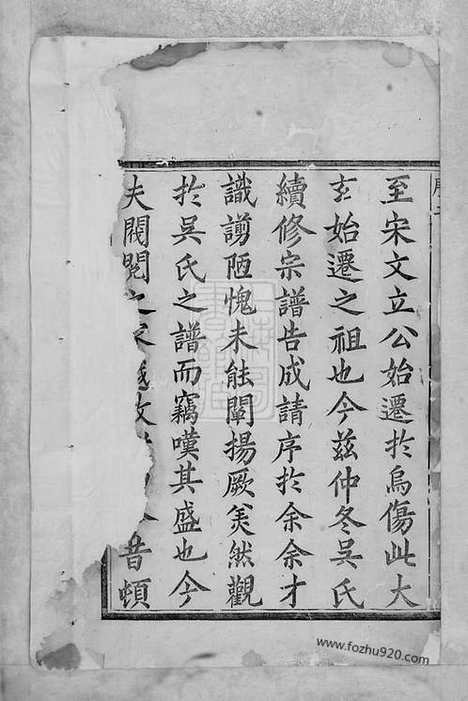 至宋文立公始遷於烏傷此大
玄始遷之祖也今茲仲冬吳氏
續修宗譜告成請序於余余才
識謭陋愧未能闡揚厥美然觀
於吳氏之譜而竊嘆其盛也今
夫閥閱之家
昔頓
www.fozhu920.com